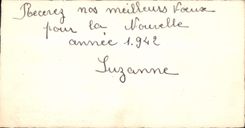 Recevez nos meilleurs vœux
pour la Nouvelle
année 1.942
Suzanne